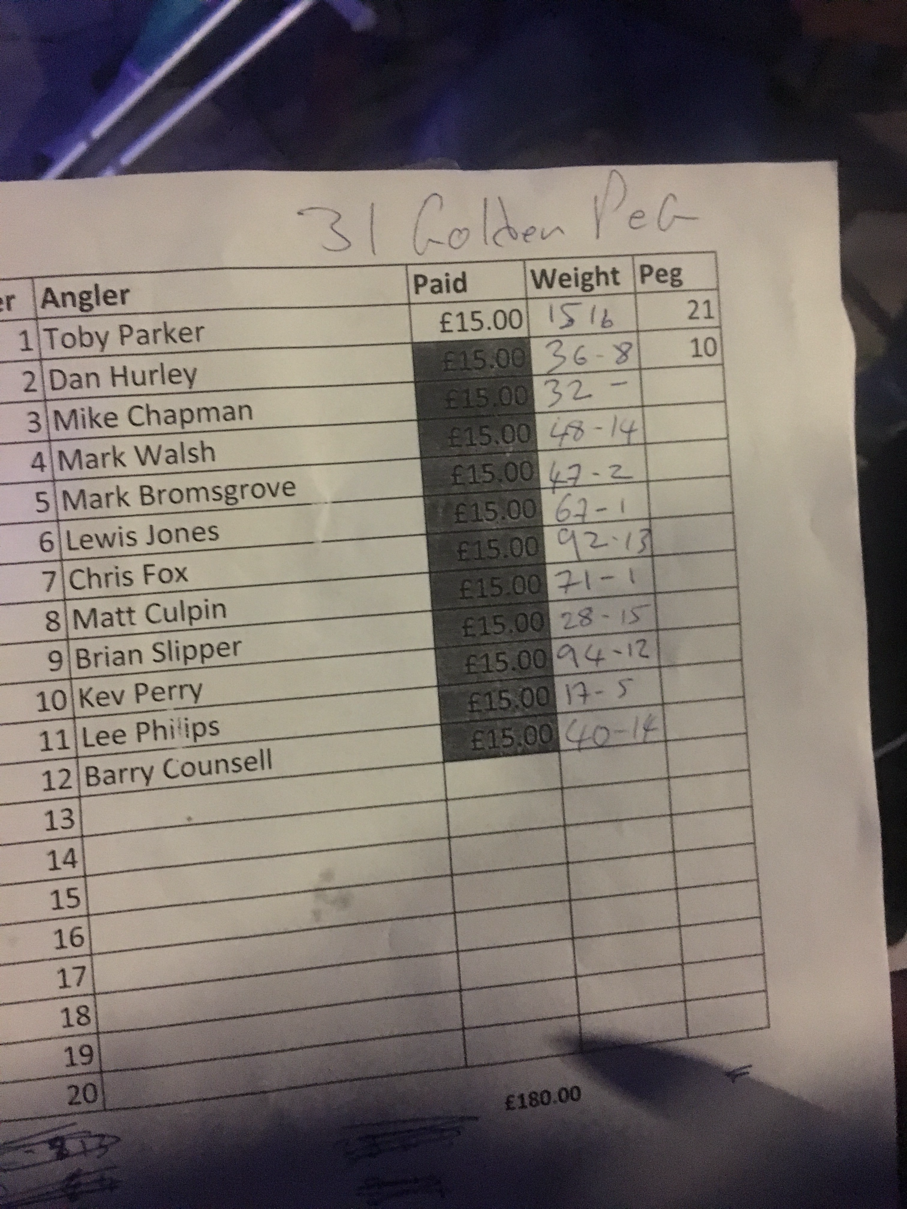 31 Golden Peg
er Angler Paid Weight Peg
1 Toby Parker £15.00 15 lb 21
2 Dan Hurley £15.00 36-8 10
3 Mike Chapman £15.00 32 -
4 Mark Walsh £15.00 48-14
5 Mark Bromsgrove £15.00 47-2
6 Lewis Jones £15.00 67-1
7 Chris Fox £15.00 92-13
8 Matt Culpin £15.00 71-1
9 Brian Slipper £15.00 28-15
10 Kev Perry £15.00 94-12
11 Lee Philips £15.00 17-5
12 Barry Counsell £15.00 40-14
13
14
15
16
17
18
19
20
£180.00